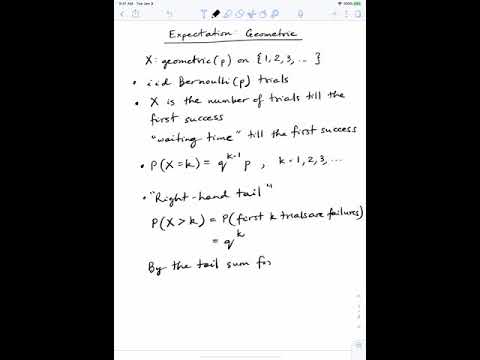 9:41 AM Tue Jan 9
Expectation: Geometric
X: geometric (p) on {1, 2, 3, ... }
• iid Bernoulli (p) trials
• X is the number of trials till the
first success
"waiting time" till the first success
• P(X=k) = q^{k-1} p , k = 1, 2, 3, ...
• "Right-hand tail"
P(X>k) = P(first k trials are failures)
= q^k
By the tail sum for